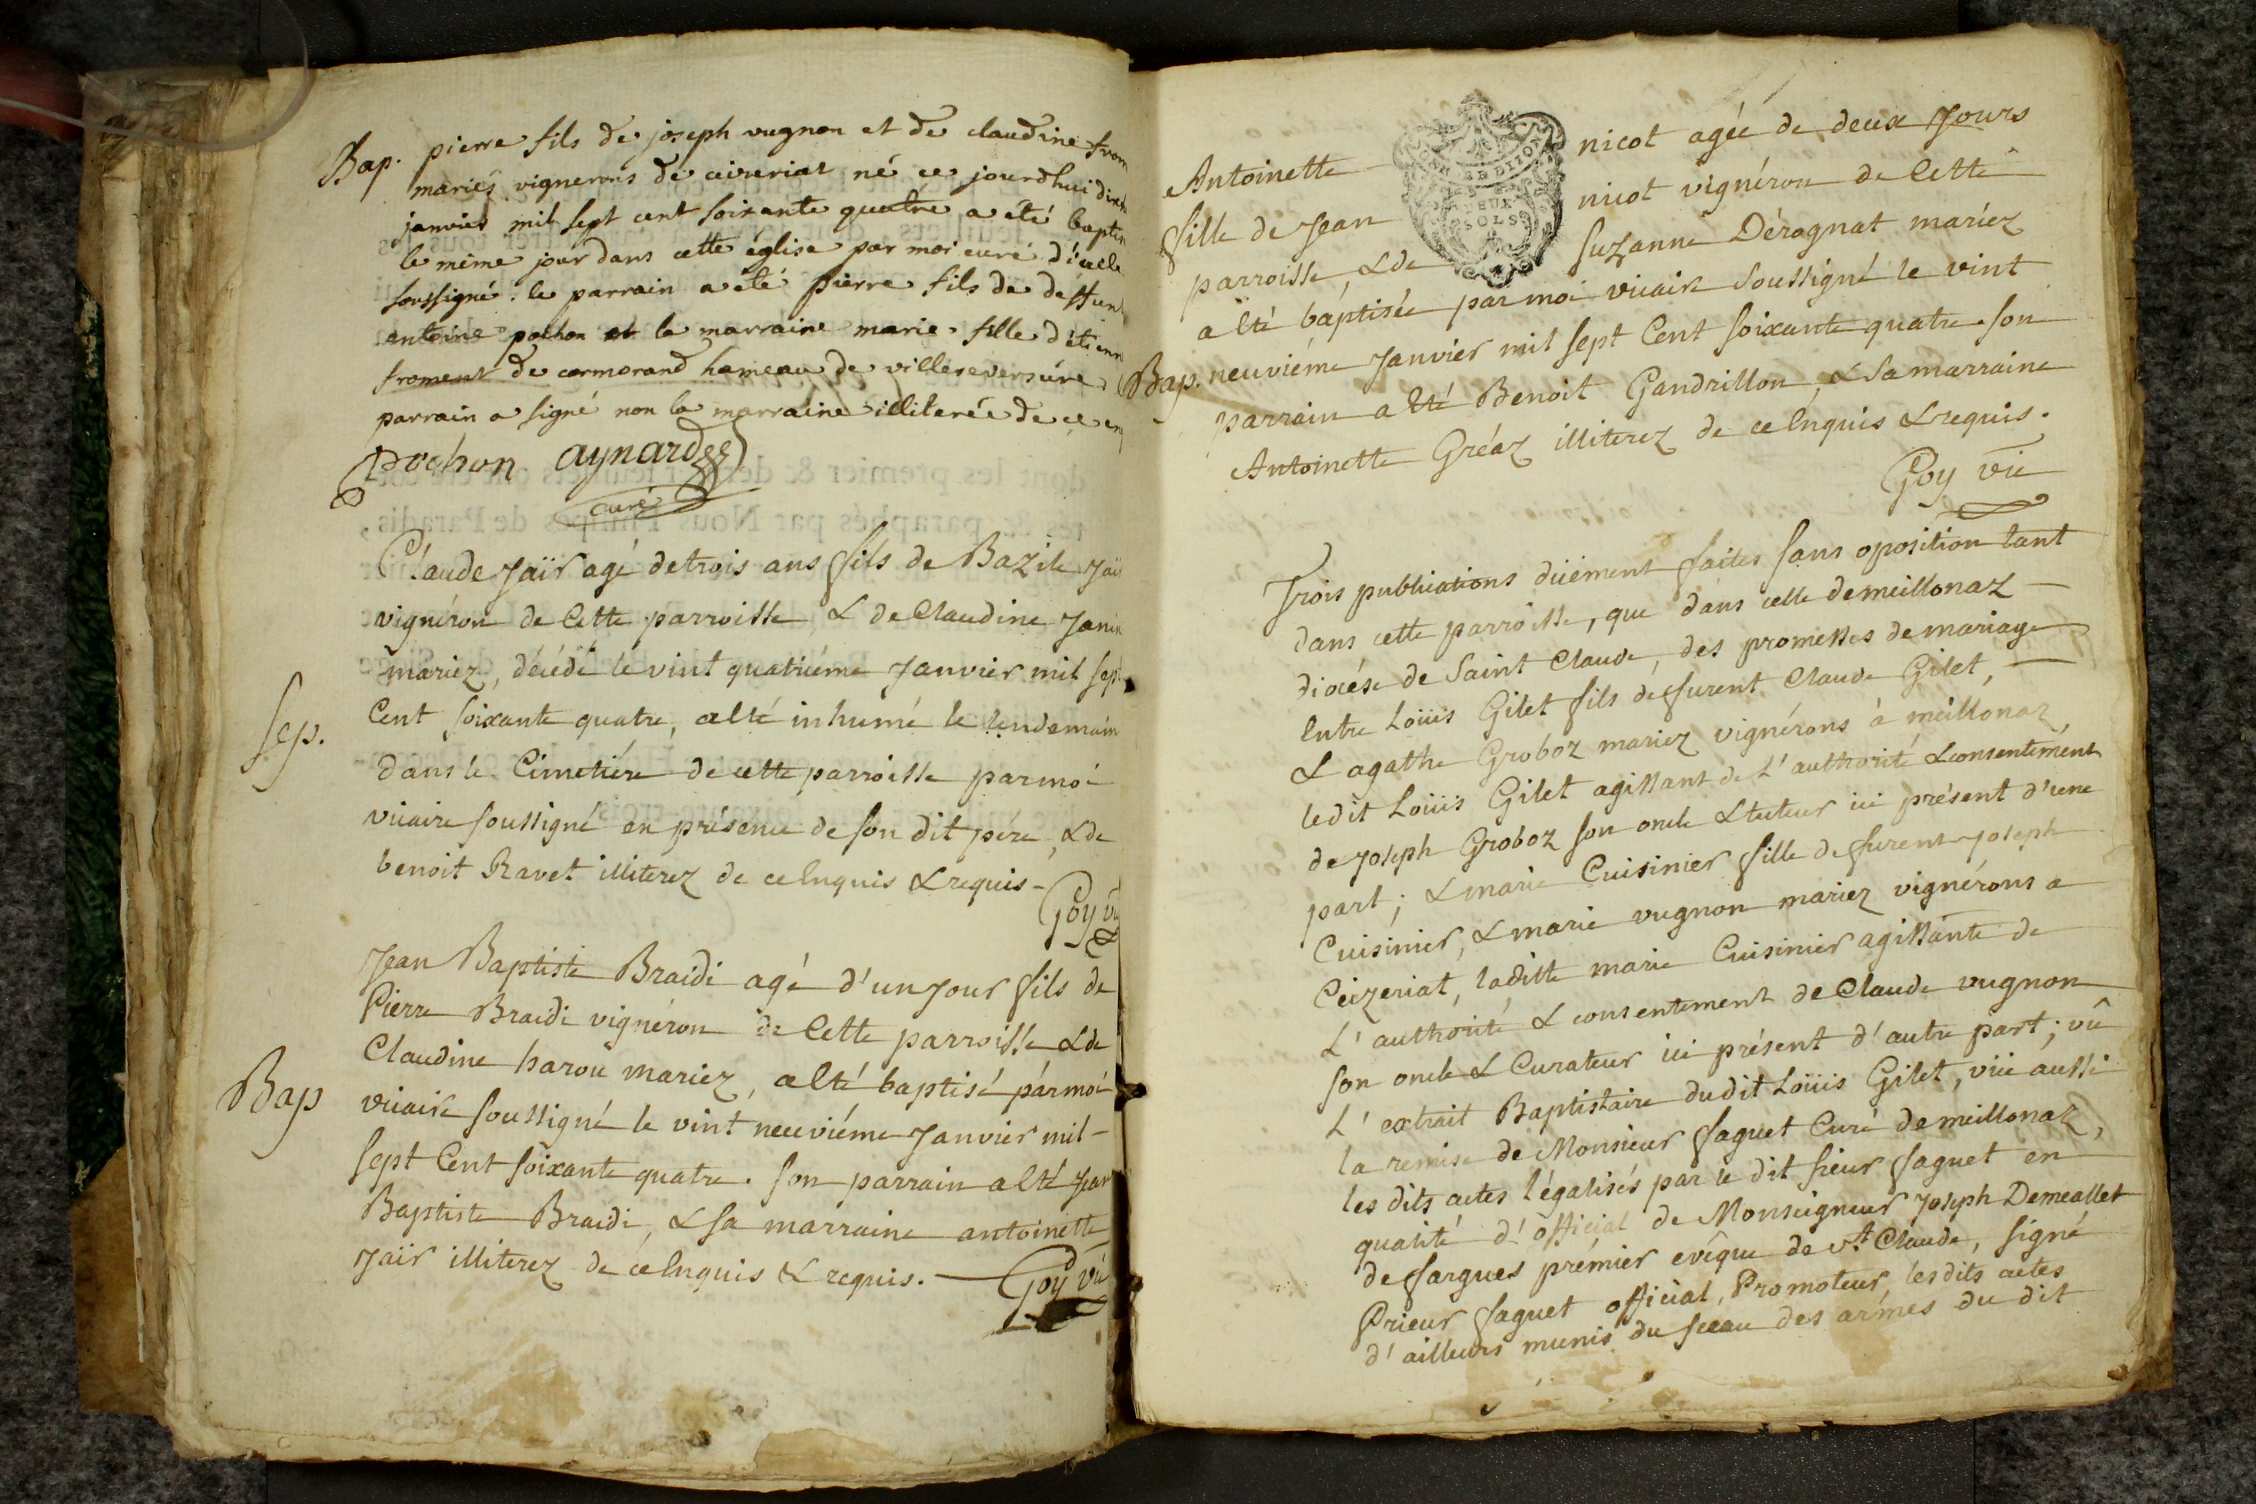 Bap. pierre fils de joseph vugnon et de claudine
mariés vignerons de ceizeriat né ce jourdhui
janvier mil sept cent soixante quatre a été
le même jour dans cette église par moi curé d'icelle
soussigné. le parrain a été pierre fils de deffun
antoine pochon et la marraine marie fille d'étienn
froment de cormorand hameau de villereversure
parrain a signé non la marraine illiterée de ce
pochon aynard
curé
Claude Jaïr agé de trois ans fils de Bazile Jaï
vignéron de Cette parroisse & de Claudine Janin
mariez, décédé le vint quatriéme Janvier mil sept
Sep.
Cent soixante quatre, a Eté inhumé le lendemain
dans le Cimetiére de cette parroisse par moi
vicaire soussigné en présence de son dit pére, & de
benoit Ravet illiterez de ce Enquis & requis -
Goy
Jean Baptiste Braidi agé d'un Jour fils de
Pierre Braidi vignéron de Cette parroisse & de
Claudine harou mariez, a Eté baptisé par moi
Bap
vicaire soussigné le vint neuviéme Janvier mil -
sept Cent soixante quatre. son parrain a Eté Jean
Baptiste Braidi, & sa marraine antoinette
Jaïr illiterez de ce Enquis & requis. Goy vic
Antoinette nicot agée de deux Jours
DEUX
SOLS
fille de Jean nicot vignéron de Cette
parroisse, & de Suzanne Déragnat mariez
a Eté baptisée par moi vicaire soussigné le vint
Bap. neuviéme Janvier mil sept Cent soixante quatre. son
parrain a Eté Benoit Gandrillon, & sa marraine
Antoinette Gréaz illiterez de ce Enquis & requis.
Goy vic
Trois publications düement faites sans oposition tant
dans cette parroisse, que dans celle de meillonaz
diocése de Saint Claude, des promesses de mariage
Entre Loüis Gilet fils de furent Claude Gilet,
& agathe Groboz mariez vignérons à meillonaz,
ledit Loüis Gilet agissant de L'authorité & consentement
de Joseph Groboz son oncle & tuteur ici présent d'une
part; & marie Cuisinier fille de furent Joseph
Cuisinier, & marie vugnon mariez vignérons a
Ceizeriat, laditte marie Cuisinier agissante de
L'authorité & consentement de Claude vugnon
son oncle & Curateur ici présent d'autre part; vû
L'extrait Baptistaire dudit Loüis Gilet, vüe aussi
la remise de Monsieur faguet Curé de meillonaz,
les dits actes légalisés par le dit sieur faguet en
qualité d'official de Monseigneur Joseph Demeallet
de fargues prémier evêque de St Claude, signé
Prieur faguet official, Promoteur, lesdits actes
d'ailleurs munis du sceau des armes du dit